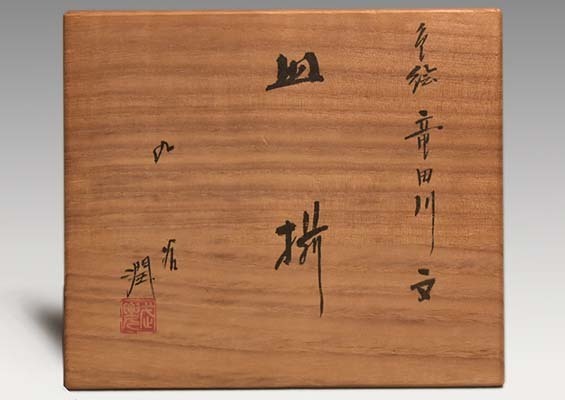 色絵 竜田川 文
皿 揃
九谷
潤